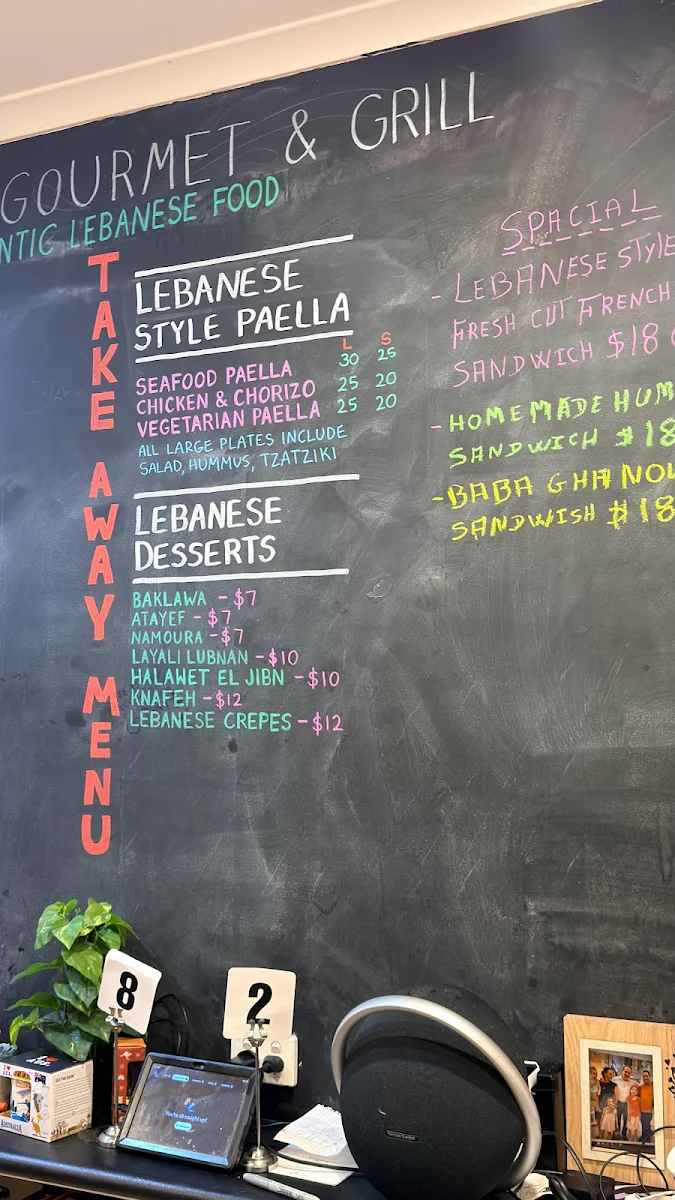 GOURMET & GRILL
NTIC LEBANESE FOOD
TAKE AWAY MENU
LEBANESE
STYLE PAELLA
L S
SEAFOOD PAELLA 30 25
CHICKEN & CHORIZO 25 20
VEGETARIAN PAELLA 25 20
ALL LARGE PLATES INCLUDE
SALAD, HUMMUS, TZATZIKI
LEBANESE
DESSERTS
BAKLAWA - $7
ATAYEF - $7
NAMOURA - $7
LAYALI LUBNAN - $10
HALAWET EL JIBN - $10
KNAFEH - $12
LEBANESE CREPES - $12
SPACIAL
- LEBANESE STYLE
FRESH CUT FRENCH
SANDWICH $18
- HOMEMADE HUM
SANDWICH $18
- BABA GHANOU
SANDWISH $18
8
2
You're all caught up!
harman/kardon
AUSTRALIA